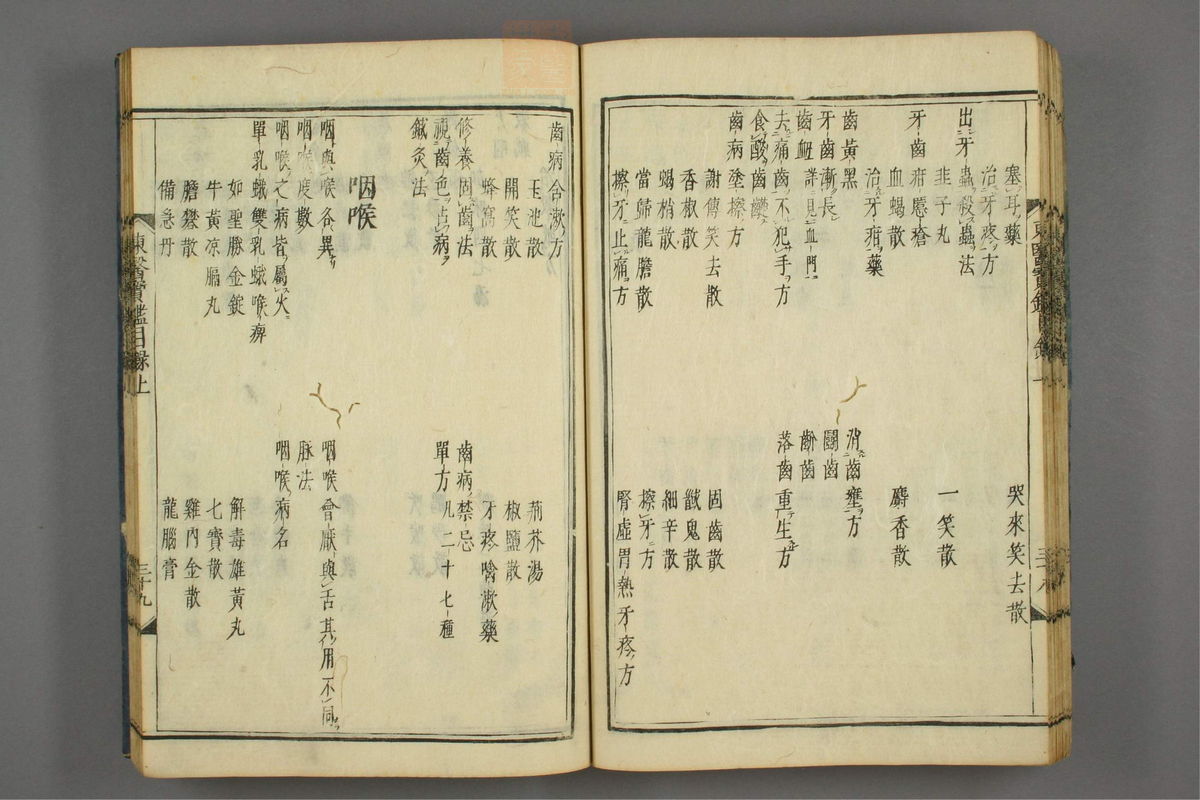 塞耳藥 哭來笑去散
治牙疼方
出牙蟲殺蟲法
韭子丸 一笑散
牙齒疳䘌瘡
血蝎散 麝香散
治牙疳藥
齒黃黑 消齒壅方
牙齒漸長 鬪齒
齒衄詳見血門 齘齒
去痛齒不犯手方 落齒重生方
食酸齒齼
齒病塗擦方
謝傳笑去散 固齒散
香椒散 䶧鬼散
蝎梢散 細辛散
當歸龍膽散 擦牙方
擦牙止痛方 腎虛胃熱牙疼方
東醫寶鑑目錄上
齒病含漱方
玉池散 荊芥湯
開笑散 椒鹽散
蜂窩散 牙疼噙漱藥
修養固齒法 齒病禁忌
視齒色占病 單方凡二十七種
鍼灸法
咽喉
咽與喉各異 咽喉會厭與舌其用不同
咽喉度數 脉法
咽喉之病皆屬火 咽喉病名
單乳蛾雙乳蛾喉痹
如聖勝金錠 解毒雄黃丸
牛黃凉膈丸 七寶散
膽礬散 雞內金散
備急丹 龍腦膏
東醫寶鑑目錄上 三十九